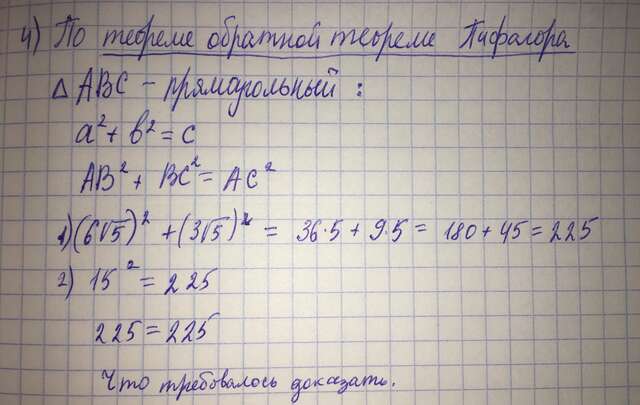 4) По теореме обратной теореме Пифагора
Δ ABC - прямоугольный :
a² + b² = c
AB² + BC² = AC²
1) (6√5)² + (3√5)² = 36·5 + 9·5 = 180 + 45 = 225
2) 15² = 225
225 = 225
Что требовалось доказать.